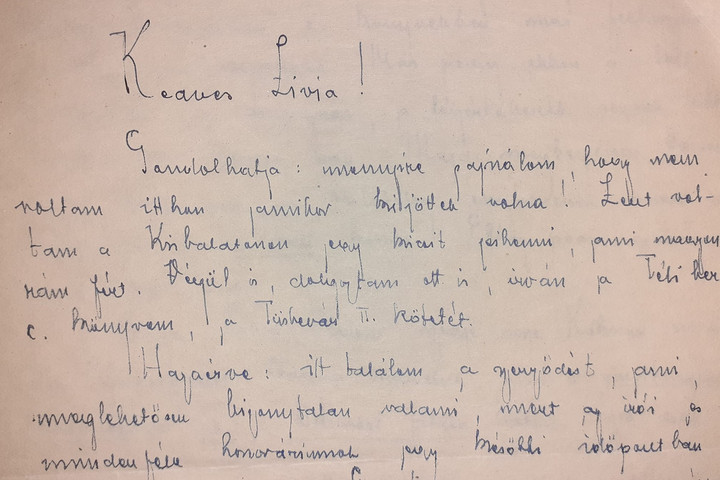 Kedves Lívia!
Gondolhatja: mennyire sajnálom, hogy nem
voltam itthon, amikor kijöttek volna! Lent vol-
tam a Kisbalatonon egy kicsit pihenni, ami nagyon
rám fért. Végül is, dolgoztam ott is, írván a Téli ber
c. könyvem, a Tüskevár II. kötetét.
Hazaérve: itt találom a szerződést, ami,
meglehetősen bizonytalan valami, mert az írói és
mindenféle honoráriumok egy későbbi időpontban